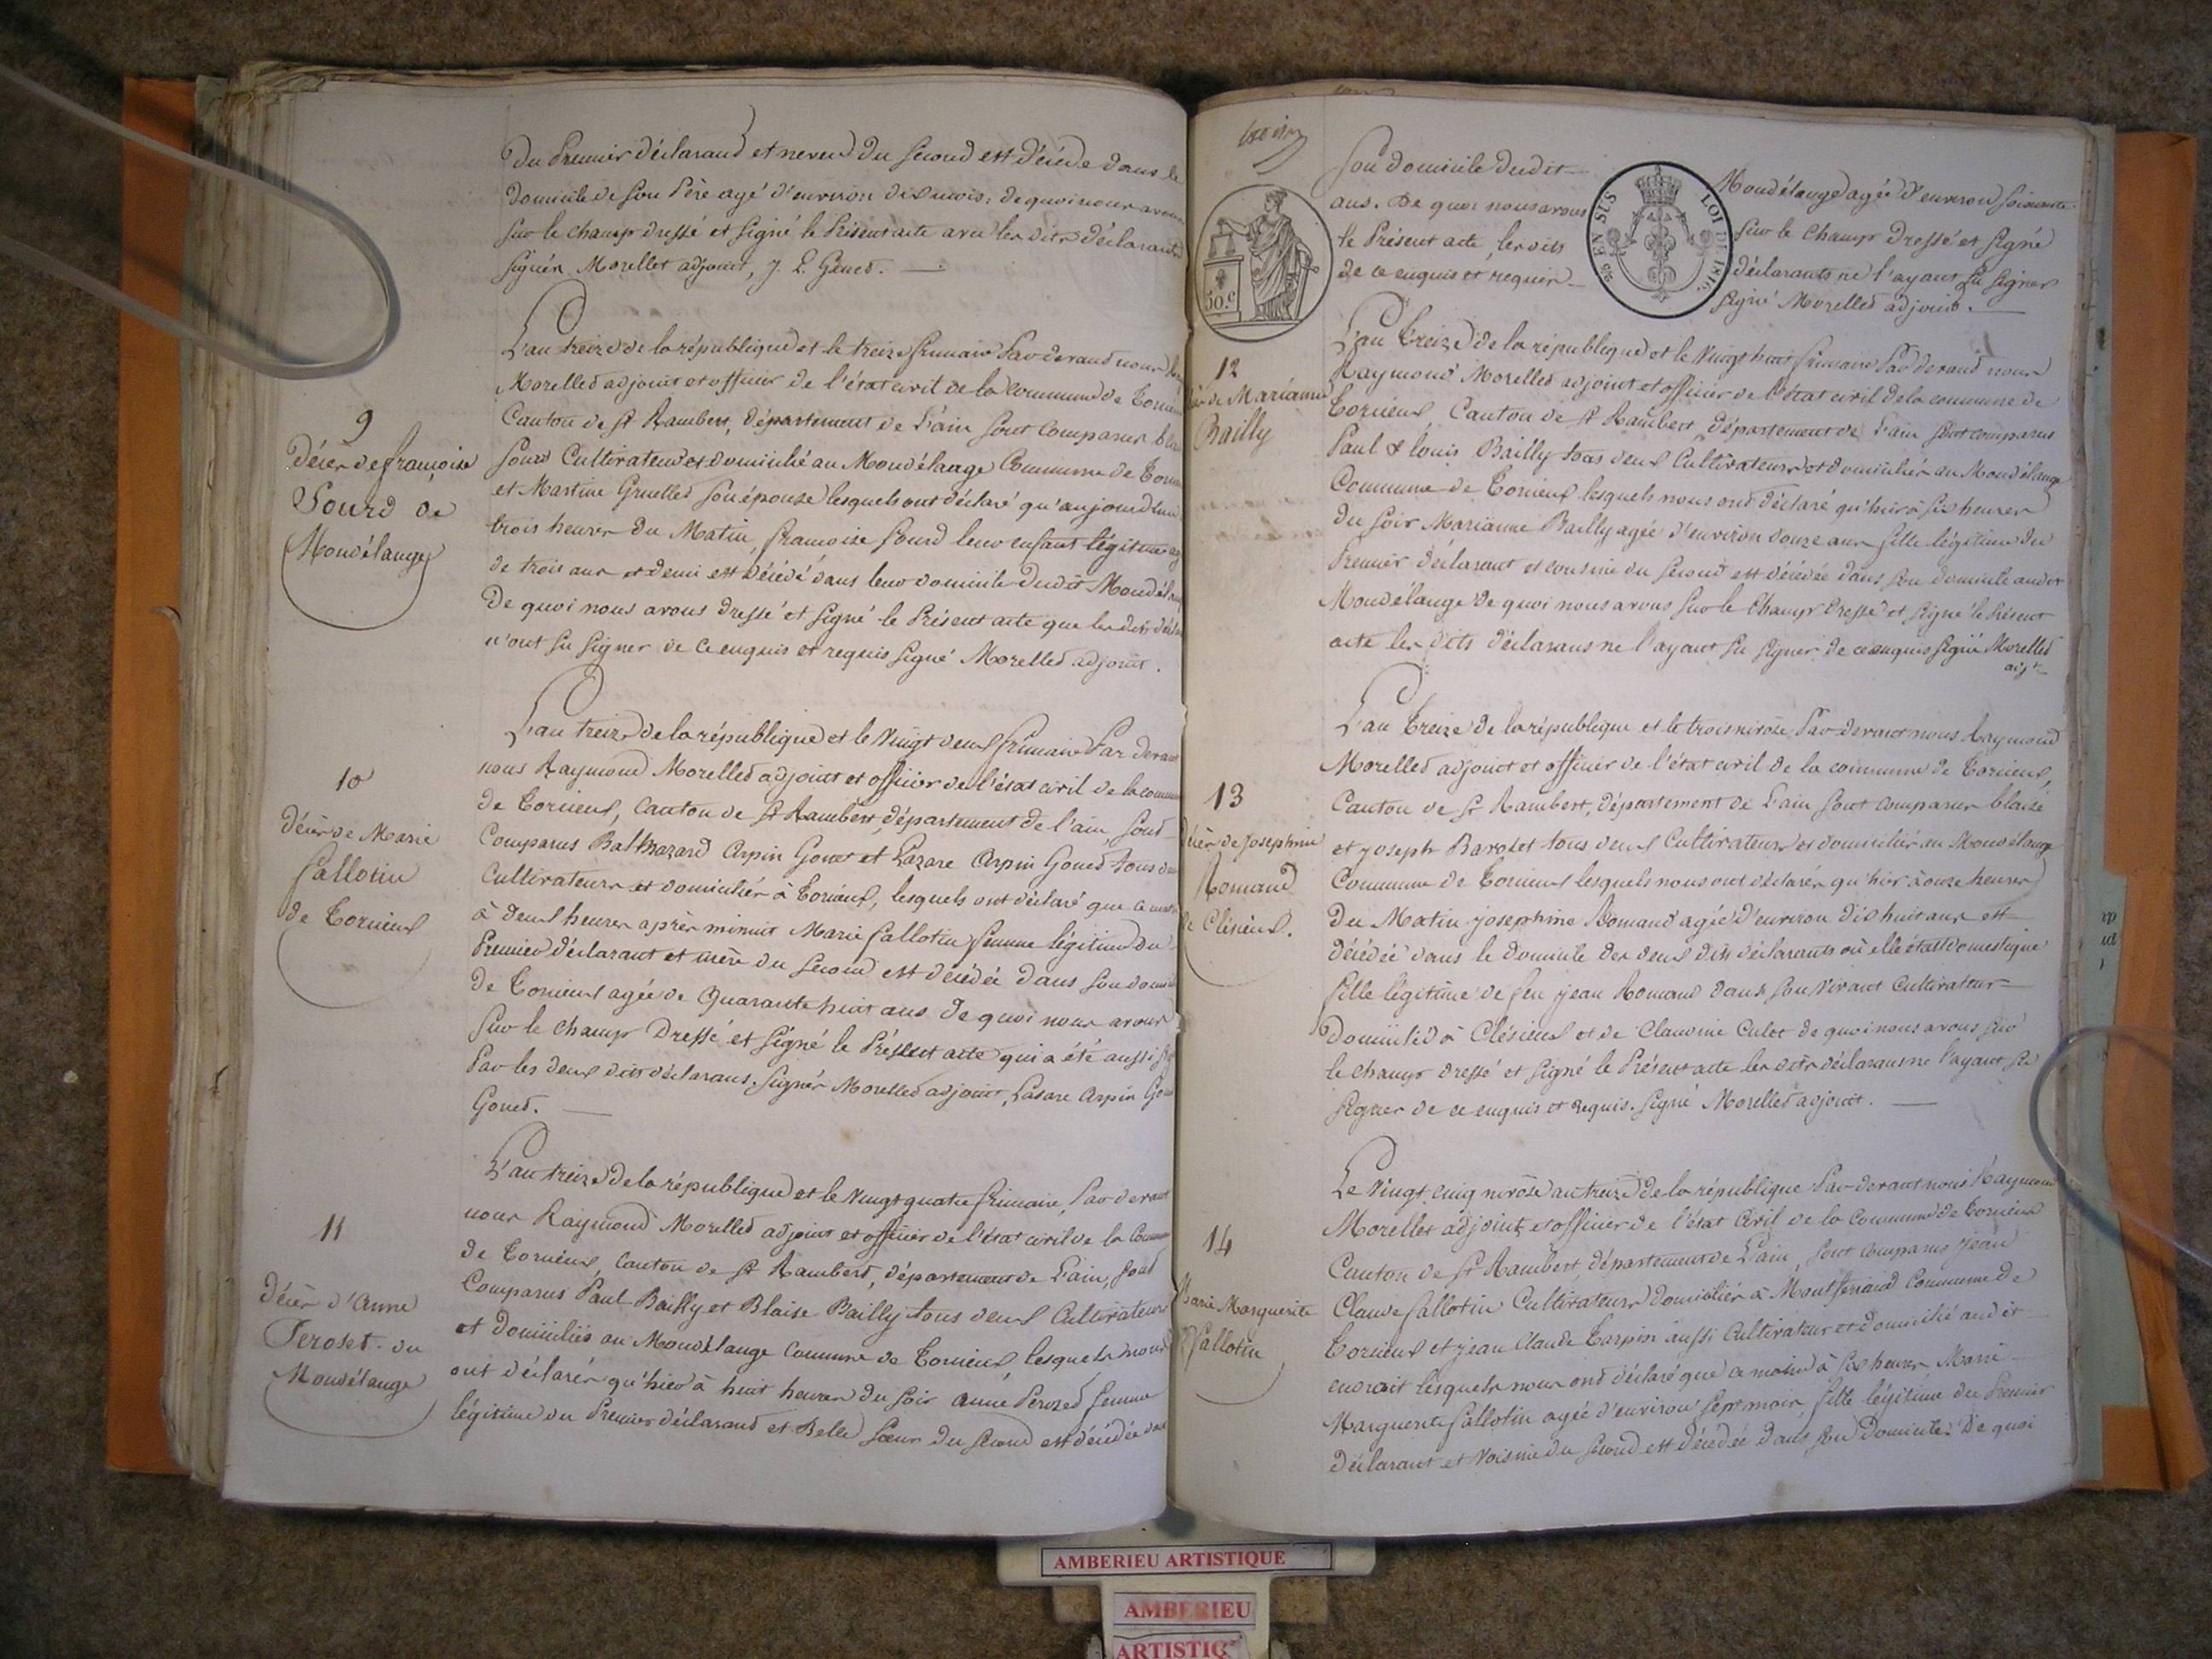 Du Premier déclarant et neveu du second est décédé dans le
domicile de son Père agé d'environ dix mois, de quoi nous avons
sur le champ dressé et signé le Présent acte avec les dits déclarants
signés Morellet adjoint, J. L. Genet.
9
Décès de françoise
Sourd de
Mondélange
L'an treize de la république et le treize frimaire Par devant nous
Morellet adjoint et officier de l'état civil de la commune de Torcieu
Canton de St Rambert, département de L'ain sont comparus
Sourd Cultivateur et domicilié au Mondélange Commune de
et Martine Gruellet son épouse lesquels ont déclaré qu'aujourd'hui
trois heures du Matin, francoise Sourd leur enfant légitime
de trois ans et demi est décédé dans leur domicile dudit
De quoi nous avons dressé et signé le Présent acte que les dits
n'ont su signer de ce enquis et requis signé Morellet adjoint.
10
Décès de Marie
Gallotin
de Torcieux
L'an treize de la république et le vingt deux frimaire Par devant
nous Raymond Morellet adjoint et officier de l'état civil de la commune
de Torcieux, Canton de St Rambert, département de l'ain, sont
Comparus Balthazard Arpin Gonet et Lazare Arpin Gonet tous deux
Cultivateurs et domiciliés à Torcieux, lesquels ont déclaré que ce matin
à deux heures après minuit Marie Gallotin femme légitime du
Premier déclarant et mère du second est décédée dans son
de Torcieux agée de Quarante huit ans de quoi nous avons
sur le champ Dressé et signé le Présent acte qui a été aussi
Par les deux dits déclarans. signés Morellet adjoint, Lazare Arpin
Gonet.
11
Décès d'Anne
Peroset du
Mondélange
L'an treize de la république et le vingt quatre frimaire, Par devant
nous Raymond Morellet adjoint et officier de l'état civil de la Commune
de Torcieux, Canton de St Rambert, département de L'ain, sont
Comparus Paul Bailly et Blaise Bailly tous deux Cultivateurs
et domiciliés au Mondélange Commune de Torcieux, lesquels nous
ont déclarés qu'hier à huit heures du soir Anne Peroset femme
légitime du Premier déclarant et Belle Sœur du second est décédée dans
son domicile dudit Mondélange agée d'environ soixante
ans. De quoi nous avons sur le champ dressé et signé
le Présent acte, les dits déclarants ne l'ayant su signer
de ce enquis et requis signé Morellet adjoint.
50.C
20 EN SUS
LOI DE 1816.
12
de Marianne
Bailly
L'an treize de la république et le vingt huit frimaire Par devant nous
Raymond Morellet adjoint et officier de l'état civil de la commune de
Torcieux Canton de St Rambert, département de L'ain sont comparus
Paul & louis Bailly tous deux Cultivateurs et domiciliés au Mondélange
Commune de Torcieux lesquels nous ont déclaré qu'hier à six heures
du soir Marianne Bailly agée d'environ douze ans fille légitime du
Premier déclarant et cousine du second est décédée dans son domicile audit
Mondélange De quoi nous avons sur le champ dressé et signé le Présent
acte les dits déclarans ne l'ayant su signer de ce enquis signé Morellet
adjt
13
Décès de Josephine
Romand
de Clésieux.
L'an treize de la république et le trois nivose Par devant nous Raymond
Morellet adjoint et officier de l'état civil de la commune de Torcieux,
Canton de St Rambert, département de L'ain sont comparus blaise
et joseph Baroset tous deux Cultivateurs et domiciliés au Mondélange
Commune de Torcieux lesquels nous ont déclarés qu'hier à onze heures
du Matin josephine Romand agée d'environ dix huit ans est
décédée dans le domicile des deux dits déclarants où elle était domestique
fille légitime de feu jean Romand dans son vivant Cultivateur
Domicilié à Clésieux et de Claudine Culet de quoi nous avons sur
le champ dressé et signé le Présent acte les dits déclarans ne l'ayant su
signer de ce enquis et requis. signé Morellet adjoint.
14
Marie Marguerite
Gallotin
Le vingt cinq nivôse an treize de la république Par devant nous Raymond
Morellet adjoint et officier de l'état civil de la Commune de Torcieux
Canton de St Rambert, département de L'ain, sont comparus jean
Claude Gallotin Cultivateur domicilié à Montferrand Commune de
Torcieux et jean Claude Tarpin aussi Cultivateur et domicilié audit
endroit lesquels nous ont déclaré que ce matin à six heures Marie
Marguerite Gallotin agée d'environ sept mois, fille légitime du Premier
déclarant et voisine du second est décédée dans son Domicile. De quoi
AMBERIEU ARTISTIQUE
AMBERIEU
ARTISTIQ